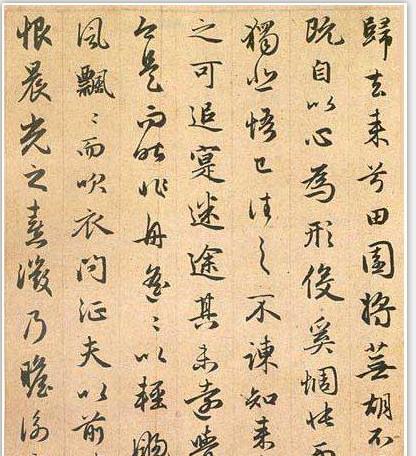 歸去来兮田園将蕪胡不
既自以心為形役奚惆悵而
獨悲悟已往之不諫知来
之可追寔迷途其未遠覺
今是而昨非舟遥〻以輕颺
風飄〻而吹衣問征夫以前
恨晨光之熹微乃瞻衡